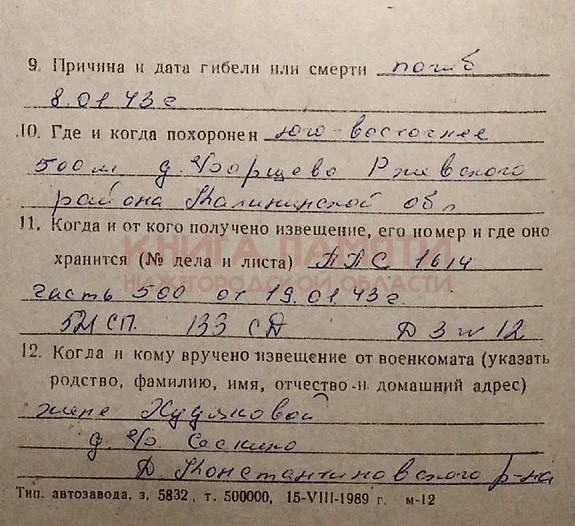 9. Причина и дата гибели или смерти погиб
8.01.43 г
10. Где и когда похоронен юго-восточнее
500 м д. Борщево Ржевского
района Калининской обл
11. Когда и от кого получено извещение, его номер и где оно
хранится (№ дела и листа) ППС 1614
КНИГА ПАМЯТИ
НИЖЕГОРОДСКОЙ ОБЛАСТИ
часть 500 от 19.01.43 г.
521 СП. 133 СД Д 3 л 12
12. Когда и кому вручено извещение от военкомата (указать
родство, фамилию, имя, отчество и домашний адрес)
жене Худяковой
д. Сескино
Д. Константиновского р-на
Тип. автозавода. з. 5832, т. 500000, 15-VIII-1989 г. м-12